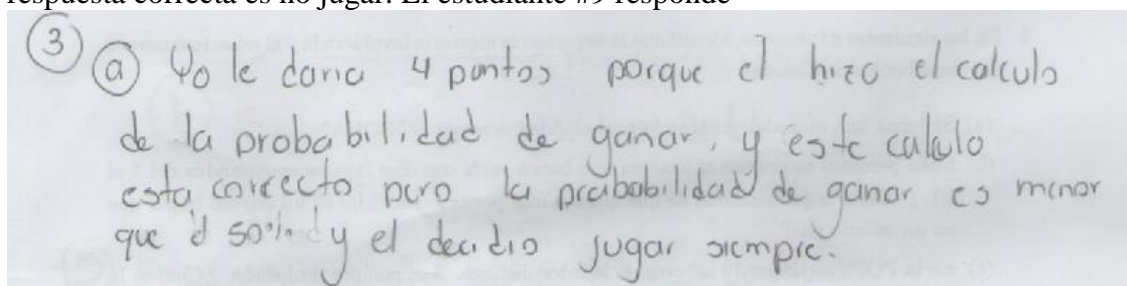 respuesta correcta es no jugar. El estudiante #9 responde
3
a Yo le daria 4 puntos porque el hizo el calculo
de la probabilidad de ganar, y este calculo
esta correcto pero la probabilidad de ganar es menor
que el 50% y el decidio jugar siempre.